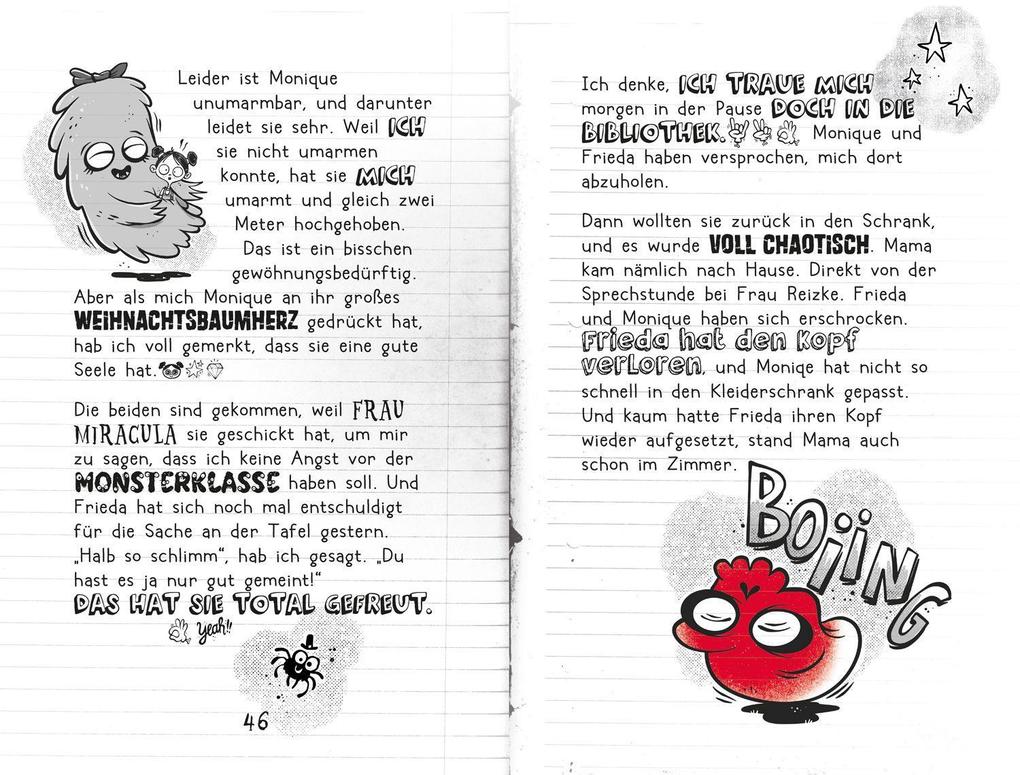 Leider ist Monique
unumarmbar, und darunter
leidet sie sehr. Weil ICH
sie nicht umarmen
konnte, hat sie MICH
umarmt und gleich zwei
Meter hochgehoben.
Das ist ein bisschen
gewöhnungsbedürftig.
Aber als mich Monique an ihr großes
WEIHNACHTSBAUMHERZ gedrückt hat,
hab ich voll gemerkt, dass sie eine gute
Seele hat.
Die beiden sind gekommen, weil FRAU
MIRACULA sie geschickt hat, um mir
zu sagen, dass ich keine Angst vor der
MONSTERKLASSE haben soll. Und
Frieda hat sich noch mal entschuldigt
für die Sache an der Tafel gestern.
„Halb so schlimm“, hab ich gesagt. „Du
hast es ja nur gut gemeint!“
DAS HAT SIE TOTAL GEFREUT.
Yeah!!
46
Ich denke, ICH TRAUE MICH
morgen in der Pause DOCH IN DIE
BIBLIOTHEK. Monique und
Frieda haben versprochen, mich dort
abzuholen.
Dann wollten sie zurück in den Schrank,
und es wurde VOLL CHAOTISCH. Mama
kam nämlich nach Hause. Direkt von der
Sprechstunde bei Frau Reizke. Frieda
und Monique haben sich erschrocken.
Frieda hat den Kopf
verloren, und Moniqe hat nicht so
schnell in den Kleiderschrank gepasst.
Und kaum hatte Frieda ihren Kopf
wieder aufgesetzt, stand Mama auch
schon im Zimmer.
BOIING